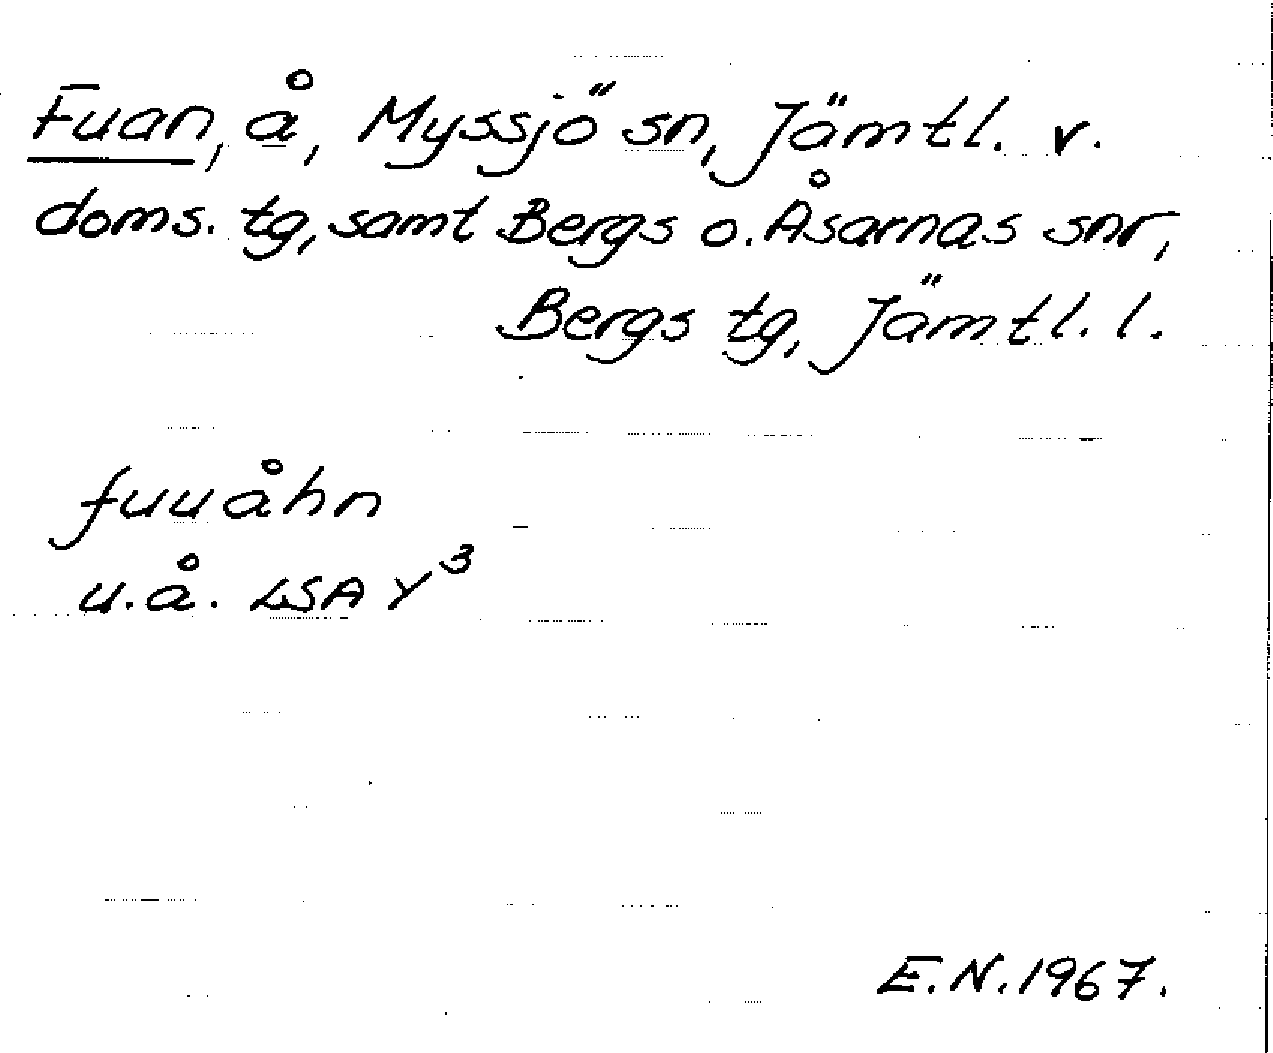 Fuan, å, Myssjö sn, Jämtl. v.
doms. tg, samt Bergs o. Åsarnas snr,
Bergs tg, Jämtl. l.
fuuåhn
u.å. LSA Y³
E.N. 1967.